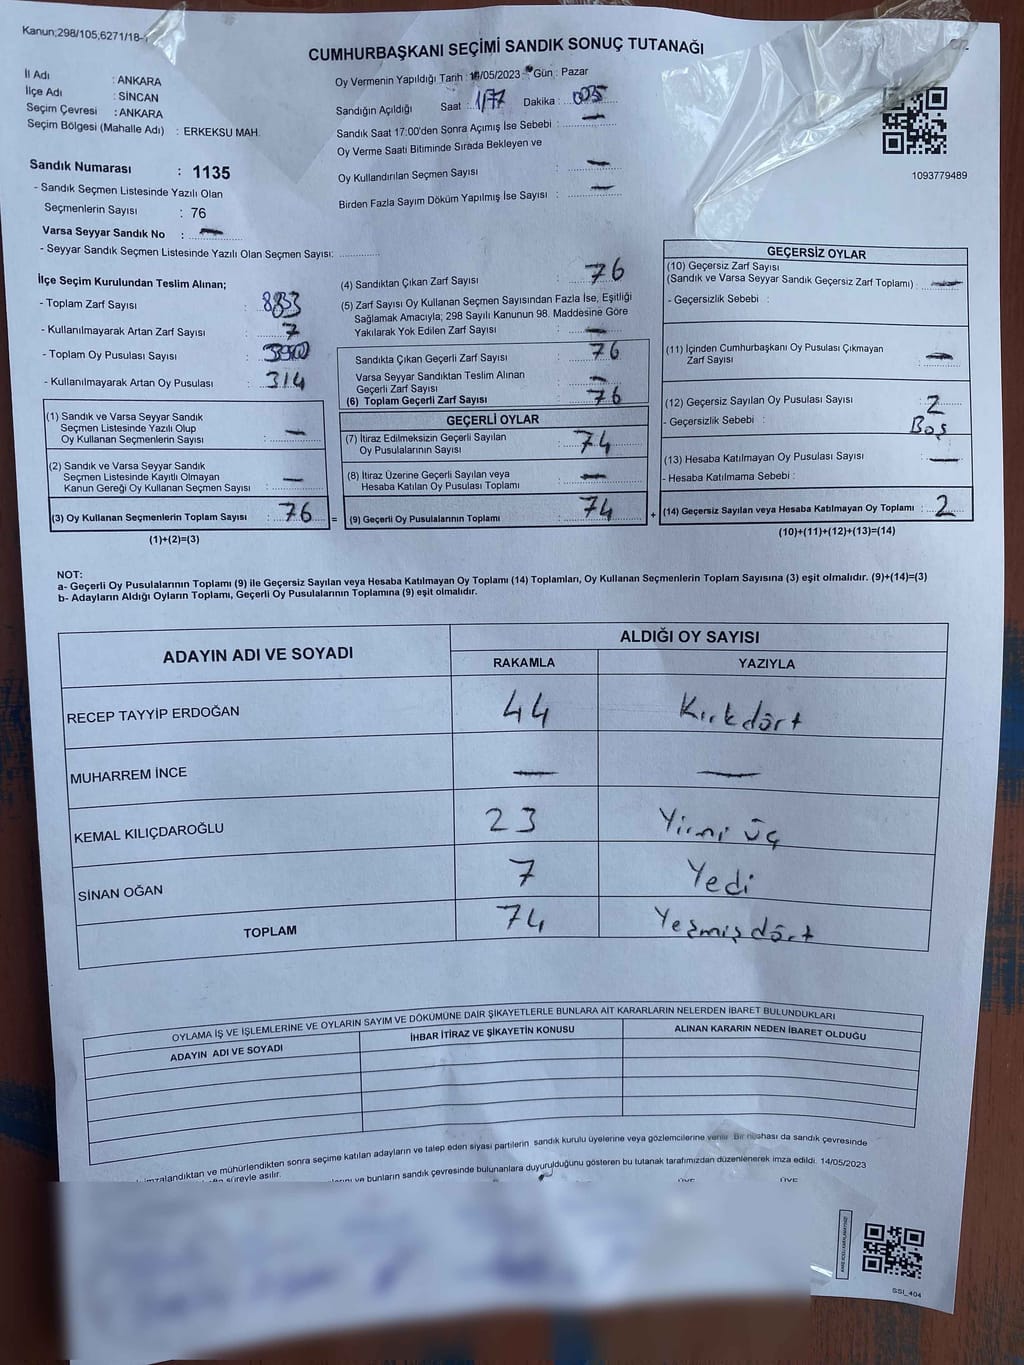 Kanun;298/105,6271/18-
CUMHURBAŞKANI SEÇİMİ SANDIK SONUÇ TUTANAĞI
İl Adı : ANKARA
İlçe Adı : SİNCAN
Seçim Çevresi : ANKARA
Seçim Bölgesi (Mahalle Adı) : ERKEKSU MAH.
Sandık Numarası : 1135
- Sandık Seçmen Listesinde Yazılı Olan
Seçmenlerin Sayısı : 76
Varsa Seyyar Sandık No : —
- Seyyar Sandık Seçmen Listesinde Yazılı Olan Seçmen Sayısı: ..............
Oy Vermenin Yapıldığı Tarih : /05/2023 - Gün : Pazar
Sandığın Açıldığı Saat : Dakika :
Sandık Saat 17:00'den Sonra Açımış İse Sebebi : —
Oy Verme Saati Bitiminde Sırada Bekleyen ve
Oy Kullandırılan Seçmen Sayısı : —
Birden Fazla Sayım Döküm Yapılmış İse Sayısı : —
1093779489
İlçe Seçim Kurulundan Teslim Alınan;
- Toplam Zarf Sayısı :
- Kullanılmayarak Artan Zarf Sayısı : 7
- Toplam Oy Pusulası Sayısı :
- Kullanılmayarak Artan Oy Pusulası : 314
(1) Sandık ve Varsa Seyyar Sandık
Seçmen Listesinde Yazılı Olup
Oy Kullanan Seçmenlerin Sayısı : —
(2) Sandık ve Varsa Seyyar Sandık
Seçmen Listesinde Kayıtlı Olmayan
Kanun Gereği Oy Kullanan Seçmen Sayısı : —
(3) Oy Kullanan Seçmenlerin Toplam Sayısı : 76
(1)+(2)=(3)
=
(4) Sandıktan Çıkan Zarf Sayısı : 76
(5) Zarf Sayısı Oy Kullanan Seçmen Sayısından Fazla İse, Eşitliği
Sağlamak Amacıyla; 298 Sayılı Kanunun 98. Maddesine Göre
Yakılarak Yok Edilen Zarf Sayısı : —
Sandıkta Çıkan Geçerli Zarf Sayısı : 76
Varsa Seyyar Sandıktan Teslim Alınan
Geçerli Zarf Sayısı : —
(6) Toplam Geçerli Zarf Sayısı : 76
GEÇERLİ OYLAR
(7) İtiraz Edilmeksizin Geçerli Sayılan
Oy Pusulalarının Sayısı : 74
(8) İtiraz Üzerine Geçerli Sayılan veya
Hesaba Katılan Oy Pusulası Toplamı : —
(9) Geçerli Oy Pusulalarının Toplamı : 74
+
GEÇERSİZ OYLAR
(10) Geçersiz Zarf Sayısı
(Sandık ve Varsa Seyyar Sandık Geçersiz Zarf Toplamı) : —
- Geçersizlik Sebebi :
(11) İçinden Cumhurbaşkanı Oy Pusulası Çıkmayan
Zarf Sayısı : —
(12) Geçersiz Sayılan Oy Pusulası Sayısı : 2
- Geçersizlik Sebebi : Boş
(13) Hesaba Katılmayan Oy Pusulası Sayısı : —
- Hesaba Katılmama Sebebi :
(14) Geçersiz Sayılan veya Hesaba Katılmayan Oy Toplamı : 2
(10)+(11)+(12)+(13)=(14)
NOT:
a- Geçerli Oy Pusulalarının Toplamı (9) ile Geçersiz Sayılan veya Hesaba Katılmayan Oy Toplamı (14) Toplamları, Oy Kullanan Seçmenlerin Toplam Sayısına (3) eşit olmalıdır. (9)+(14)=(3)
b- Adayların Aldığı Oyların Toplamı, Geçerli Oy Pusulalarının Toplamına (9) eşit olmalıdır.
ADAYIN ADI VE SOYADI ALDIĞI OY SAYISI
RAKAMLA YAZIYLA
RECEP TAYYİP ERDOĞAN 44 Kırkdört
MUHARREM İNCE — —
KEMAL KILIÇDAROĞLU 23 Yirmi üç
SİNAN OĞAN 7 Yedi
TOPLAM 74 Yetmiş dört
OYLAMA İŞ VE İŞLEMLERİNE VE OYLARIN SAYIM VE DÖKÜMÜNE DAİR ŞİKAYETLERLE BUNLARA AİT KARARLARIN NELERDEN İBARET BULUNDUKLARI
ADAYIN ADI VE SOYADI İHBAR İTİRAZ VE ŞİKAYETİN KONUSU ALINAN KARARIN NEDEN İBARET OLDUĞU
imzalandıktan ve mühürlendikten sonra seçime katılan adayların ve talep eden siyasi partilerin sandık kurulu üyelerine veya gözlemcilerine verilir. Bir nüshası da sandık çevresinde
süreyle asılır.
ve bunların sandık çevresinde bulunanlara duyurulduğunu gösteren bu tutanak tarafımızdan düzenlenerek imza edildi. 14/05/2023
ÜYE ÜYE
SSI_404